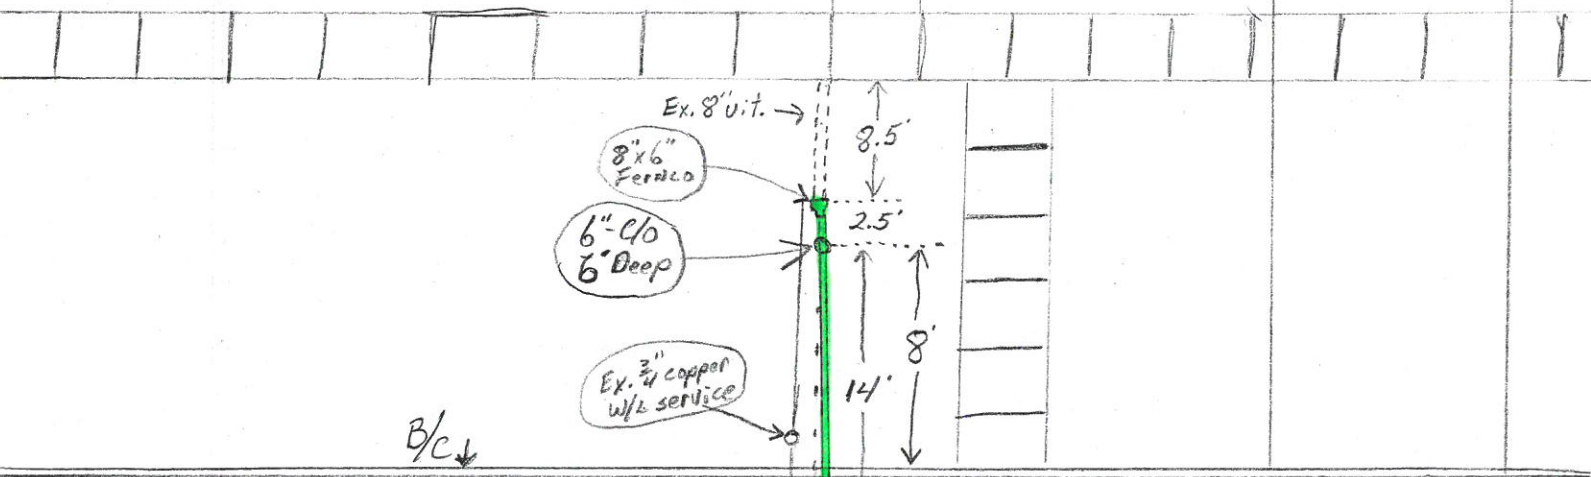 Ex. 8" vit.
8.5'
8"x6"
Fernco
2.5'
6"-C/O
6' Deep
8'
Ex. 3/4" copper
W/L service
14'
B/C